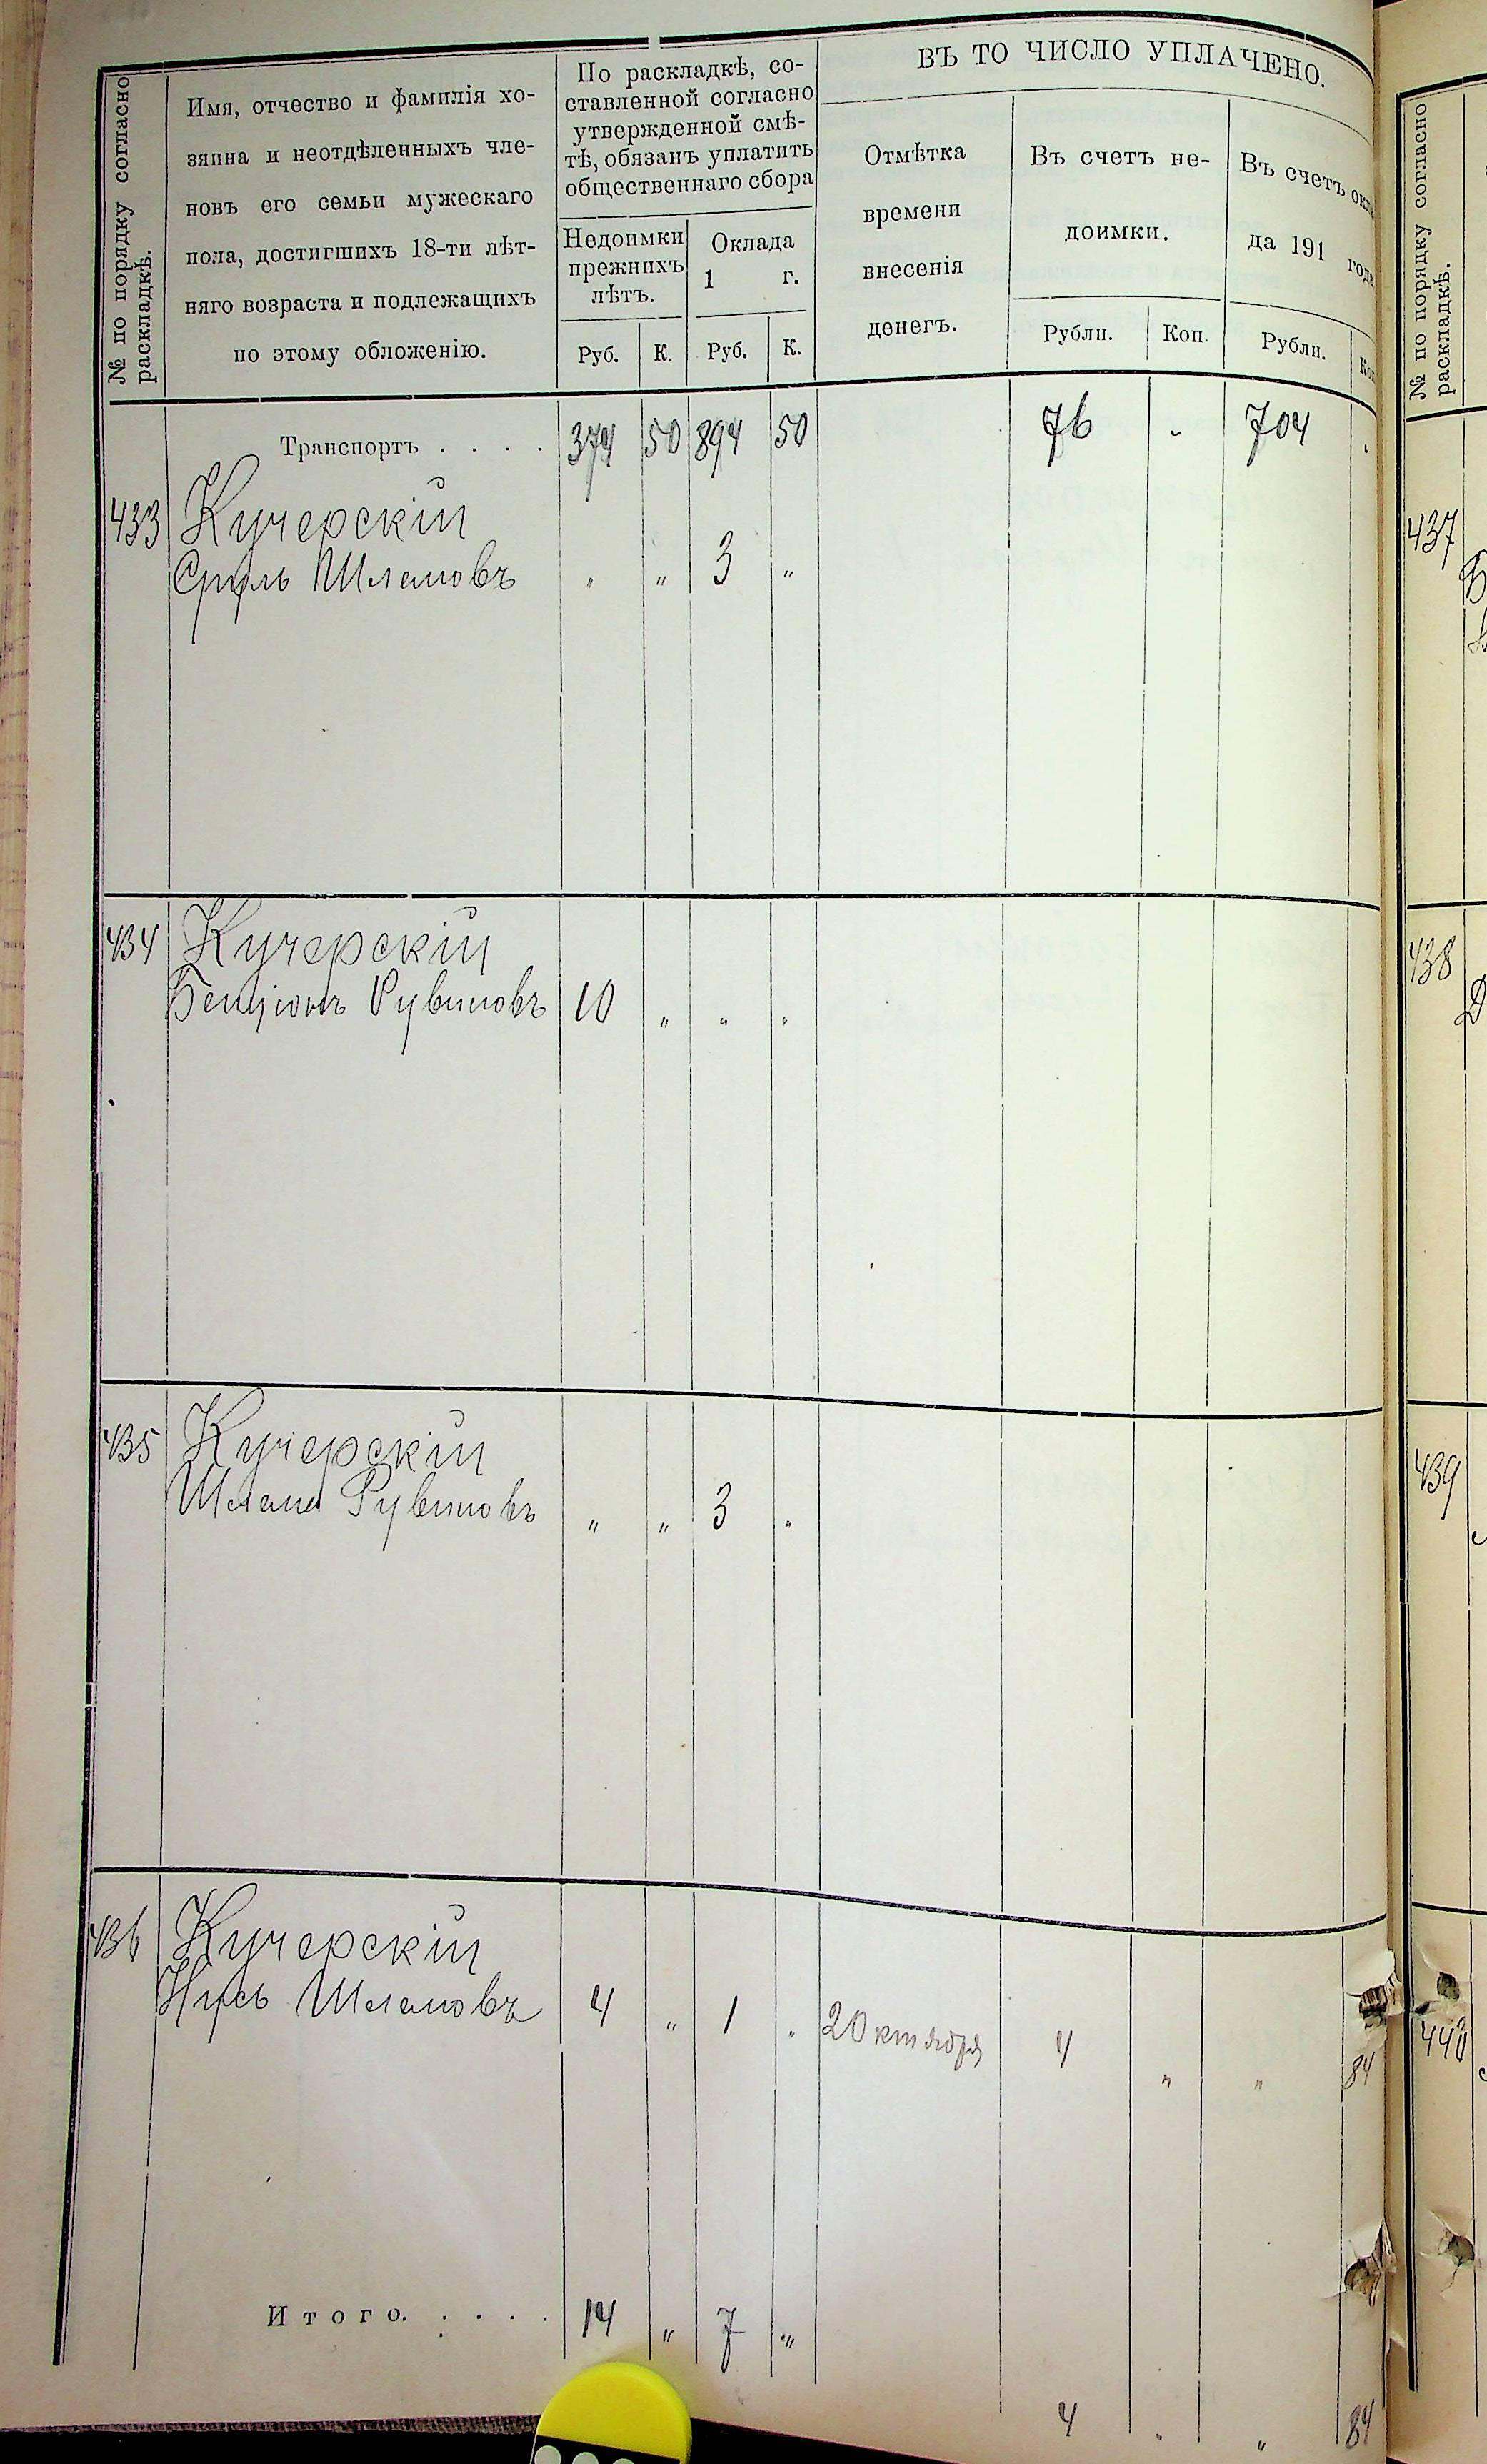 № по порядку согласно
раскладкѣ.
Имя, отчество и фамилія хо-
зяина и неотдѣленныхъ чле-
новъ его семьи мужескаго
пола, достигшихъ 18-ти лѣт-
няго возраста и подлежащихъ
по этому обложенію.
По раскладкѣ, со-
ставленной согласно
утвержденной смѣ-
тѣ, обязанъ уплатить
общественнаго сбора
Недоимки
прежнихъ
лѣтъ.
Оклада
1 г.
Руб. К. Руб. К.
ВЪ ТО ЧИСЛО УПЛАЧЕНО.
Отмѣтка
времени
внесенія
денегъ.
Въ счетъ не-
доимки.
Рубли. Коп.
Въ счетъ окла
да 191 года
Рубли. Коп
Транспортъ . . . . 374 50 894 50 76 " 704 "
433 Кучерскій
Сруль Шлемовъ " " 3 "
434 Кучерскій
Бенціонъ Рувиновъ 10 " " "
435 Кучерскій
Шлема Рувиновъ " " 3 "
436 Кучерскій
Нусь Шлемовъ 4 " 1 " 2 Октября 4 " " 84
Итого. . . . . 14 " 7 "
4 " " 84
№ по порядку согласно
раскладкѣ.
437
438
439
440